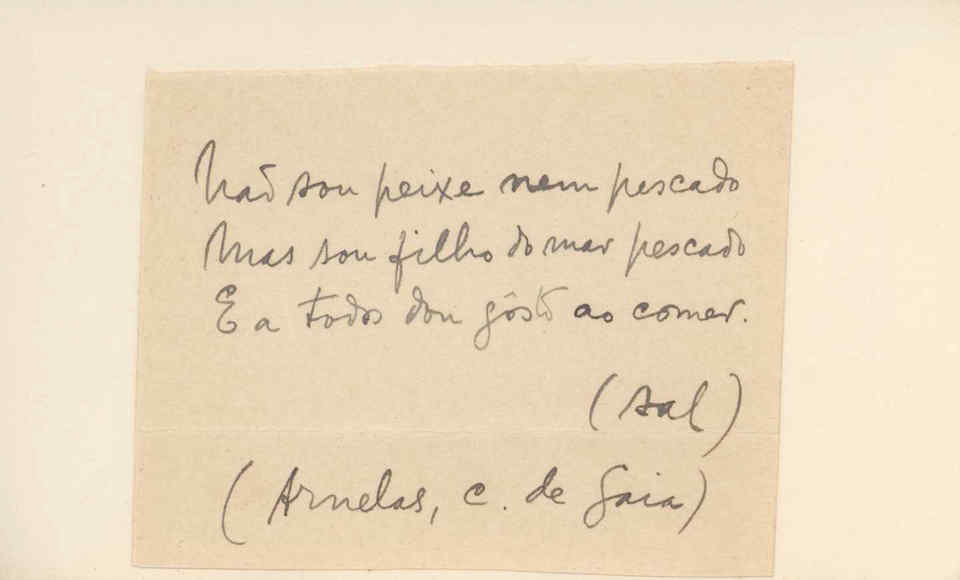 Não sou peixe nem pescado
Mas sou filho do mar pescado
E a todos dou gôsto ao comer.
(sal)
(Arnelas, c. de Gaia)